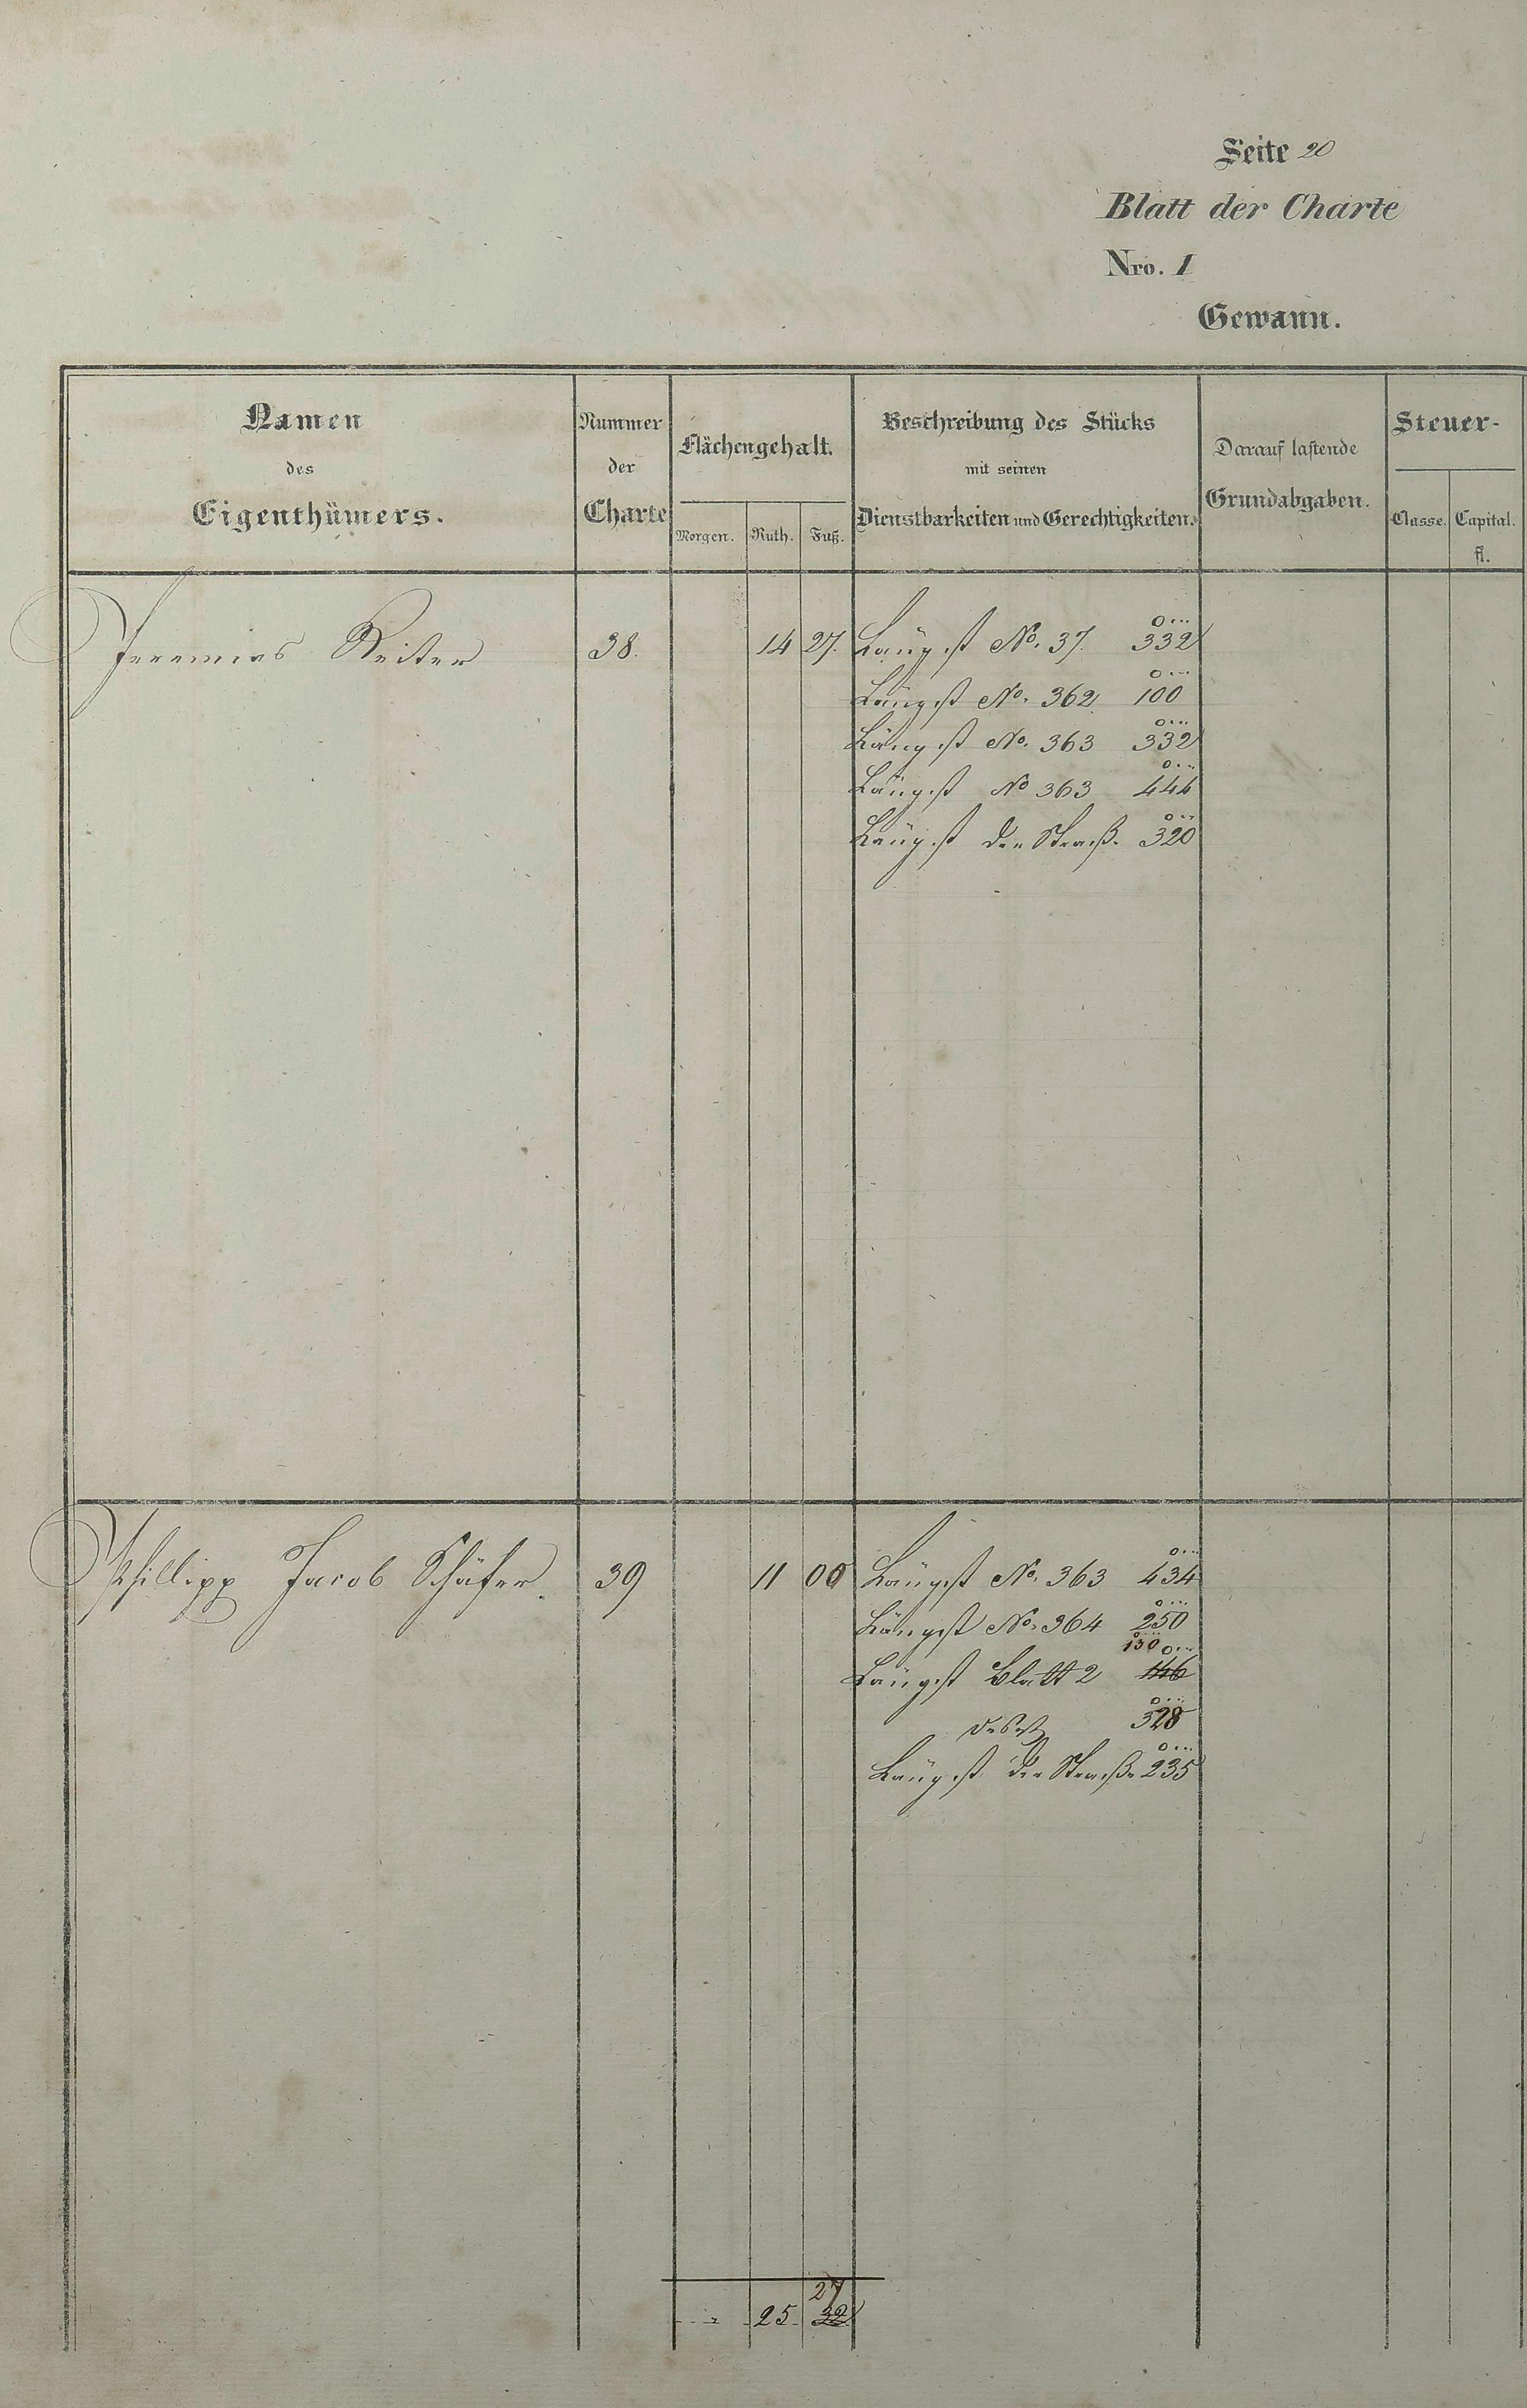 Seite 20
Blatt der Charte
Nro. 1
Gewann.
Namen
des
Eigenthümers.
Nummer
der
Charte
Flächengehalt.
Morgen. Ruth. Fuß.
Beschreibung des Stücks
mit seinen
Dienstbarkeiten und Gerechtigkeiten.
Darauf lastende
Grundabgaben.
Steuer-
Classe. Capital.
fl.
Jeremias Reiter 38. 14 27. Längst No. 37. 332
Längst No. 362 100
Längst No. 363 332
Längst No 363 444
Längst der Straße 320
Phillipp Jacob Schäfer. 39 11 00 Längst No. 363 434
Längst No. 364 250
130
Längst Blatt 2 146
328
Längst der Straße 235
27
25 32